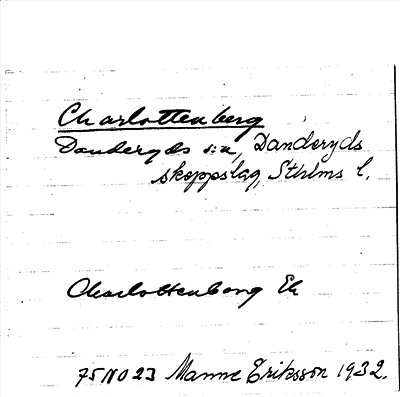 Charlottenberg
Danderyds s:n, Danderyds
skeppslag, Sthlms l.
Charlottenberg Ek
75 NO 23 Manne Eriksson 1932.